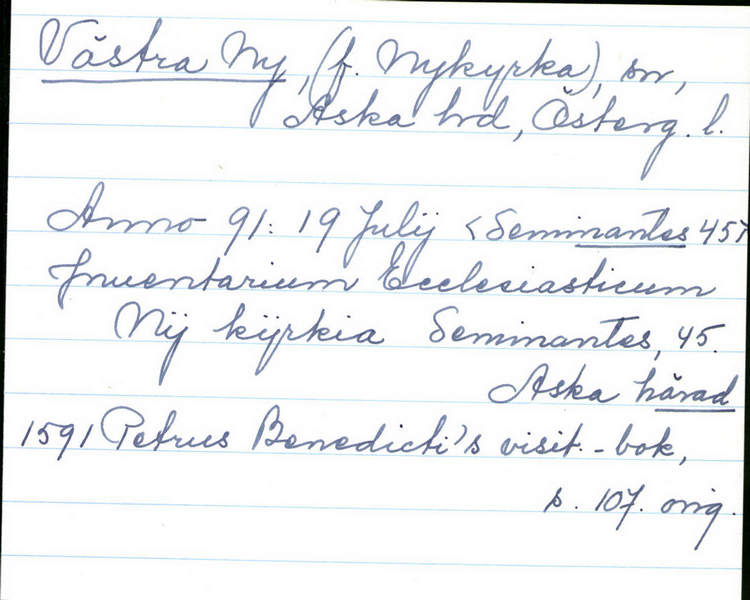 Västra Ny, (f. Nykyrka), sn,
Aska hd, Österg. l.
Anno 91: 19 Julij <Seminantes 45>
Inuentarium Ecclesiasticum
Nÿ kÿrkia Seminantes, 45.
Aska härad
1591 Petrus Benedicti's visit.-bok,
p. 107. orig.